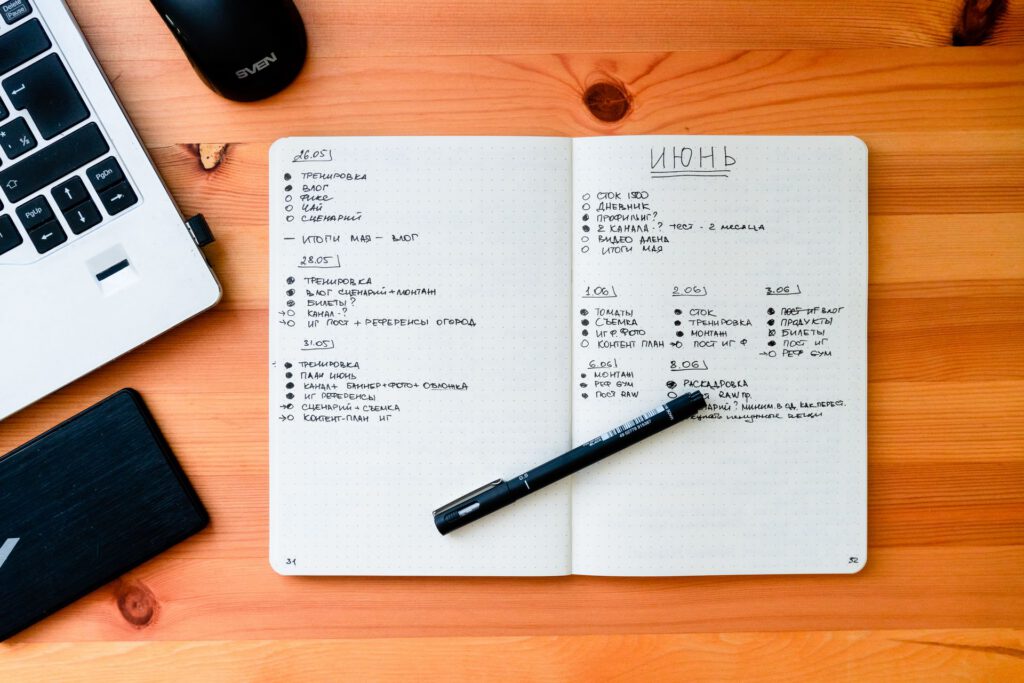 Delete
Pause
SVEN
PgDn
PgUp
26.05
● ТРЕНИРОВКА
● ВЛОГ
○ ФИКС
○ ЧАЙ
○ СЦЕНАРИЙ
— ИТОГИ МАЯ — ВЛОГ
28.05
● ТРЕНИРОВКА
● ВЛОГ СЦЕНАРИЙ + МОНТАЖ
● БИЛЕТЫ?
→○ КАНАЛ-?
→○ ИГ ПОСТ + РЕФЕРЕНСЫ ОГОРОД
31.05
● ТРЕНИРОВКА
● ПЛАН ИЮНЬ
● КАНАЛ + БАННЕР + ФОТО + ОБЛОЖКА
● ИГ РЕФЕРЕНСЫ
→○ СЦЕНАРИЙ + СЪЕМКА
→○ КОНТЕНТ-ПЛАН ИГ
31
ИЮНЬ
○ СТОК 1500
○ ДНЕВНИК
● ПРОФИЛЬ ИГ?
● 2 КАНАЛА-? ТЕСТ - 2 МЕСЯЦА
○ ВИДЕО АЛЕНА
○ ИТОГИ МАЯ
1.06
● ТОМАТЫ
● СЪЕМКА
● ИГ Ф. ФОТО
○ КОНТЕНТ ПЛАН
2.06
● СТОК
● ТРЕНИРОВКА
● МОНТАЖ
→○ ПОСТ ИГ Ф
3.06
● ПОСТ ИГ ВЛОГ
● ПРОДУКТЫ
БИЛЕТЫ
● ПОСТ ИГ
→○ РЕФ GYM
6.06
● МОНТАЖ
● РЕФ GYM
● ПОСТ RAW
8.06
● РАСКАДРОВКА
RAW ПР.
МИНИМ. В ОД. КАК ПЕРЕСТ.
вещи
32
0.5